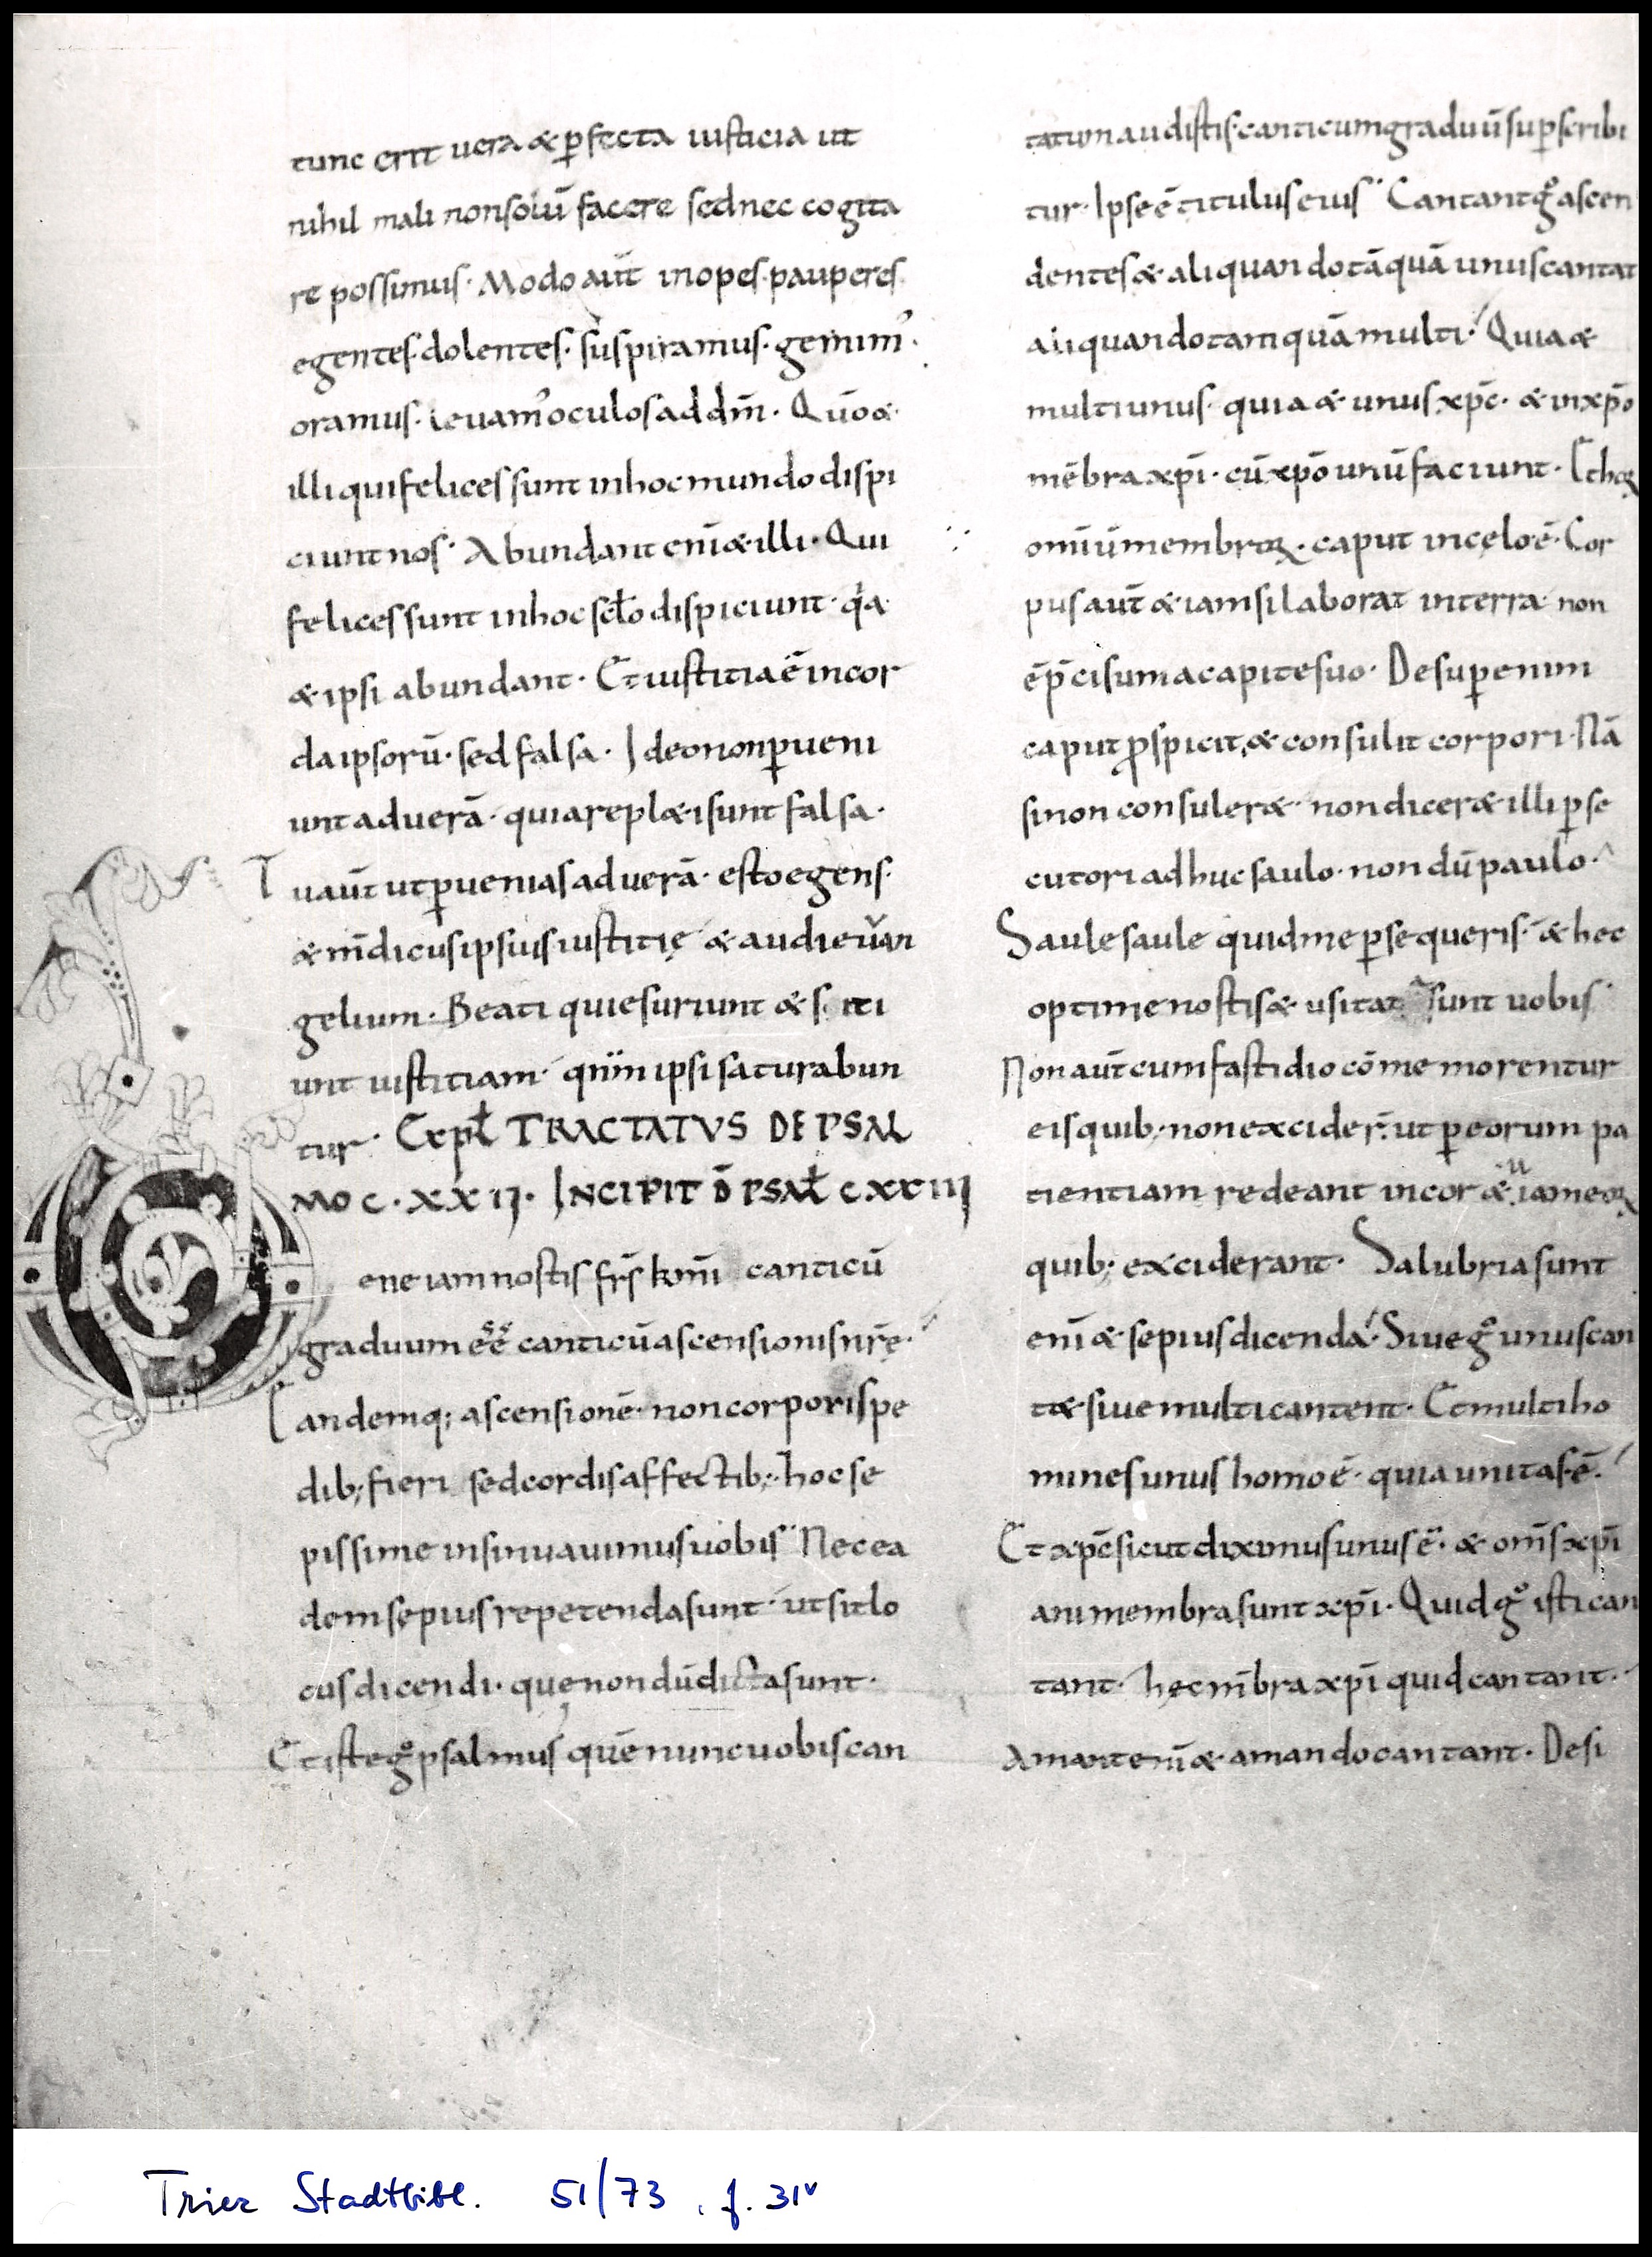 tunc erit uera & ꝑfecta iusticia ut
nihil mali non solū facere sed nec cogita
re possimus· Modo aūt inopes· pauperes
egentes· dolentes· suspiramus· gemim᾽·
oramus· leuam᾽ oculos ad dm̄· Qūo &
illi qui felices sunt in hoc mundo dispi
ciunt nos· Abundant enī & illi· Qui
felices sunt in hoc scƚo dispiciunt· qͥa
& ipsi abundant· Et iustitia ē in cor
da ipsorū· sed falsa· Ideo non ꝑueni
unt ad uerā· quia repl&i sunt falsa·
Tu aūt ut ꝑuenias ad uerā· esto egens·
& m̄dicus ipsius iustitię & audi euan
gelium· Beati qui esuriunt & siti
unt iustitiam· qm̄ ipsi saturabun
tur· Expƚ TRACTATVS DE PSAL
MO C·XXII· INCIPIT D̄ PSAƚ CXXIII
Bene iam nostis fr̄s km̄i canticū
graduum eē canticū ascensionis nr̄ę·
Eandemq; ascensionē· non corporis pe
dib; fieri sed cordis affectib;· hoc se
pissime insinuauimus uobis· Nec ea
dem sepius repetenda sunt· ut sit lo
cus dicendi· quę non dū dicta sunt·
Et iste gͦ psalmus quē nunc uobis can
tatum audistis· canticum graduū suꝑscribi
tur· Ipse ē titulus eius· Cantant gͦ ascen
dentes & aliquando tāquā unus cantat
aliquando tamquā multi· Quia &
multi unus· quia & unus xp̄c· & in xp̄o
mēbra xp̄i· cū xp̄o unū faciunt· Et hoꝝ
omīū membroꝝ· caput in cęlo ē· Cor
pus aūt &iam si laborat in terra· non
ē p̄cisum a capite suo· Desuꝑ enim
caput ꝓspicit, & consulit corpori· Nā
si non consuler&· non dicer& illi ꝑse
cutori adhuc saulo· non dū paulo·
Saule saule quid me ꝑsequeris· & hec
optime nostis & usitata sunt uobis·
Non aūt cum fastidio cōmemorentur
eis quib; non excider̄· ut ꝑ eorum pa
tientiam redeant in cor & iam eoꝝ
quib; exciderant· Salubria sunt
enī & sepius dicenda· Siue gͦ unus can
t& siue multi cantent· Et multi ho
mines unus homo ē· quia unitas ē·
Et xp̄c sicut diximus unus ē· & om̄s xp̄i
ani membra sunt xp̄i· Quid gͦ isti can
tant· hęc m̄bra xp̄i quid cantant·
Amant enī & amando cantant· Desi
Trier Stadtbibl. 51/73, f. 31v